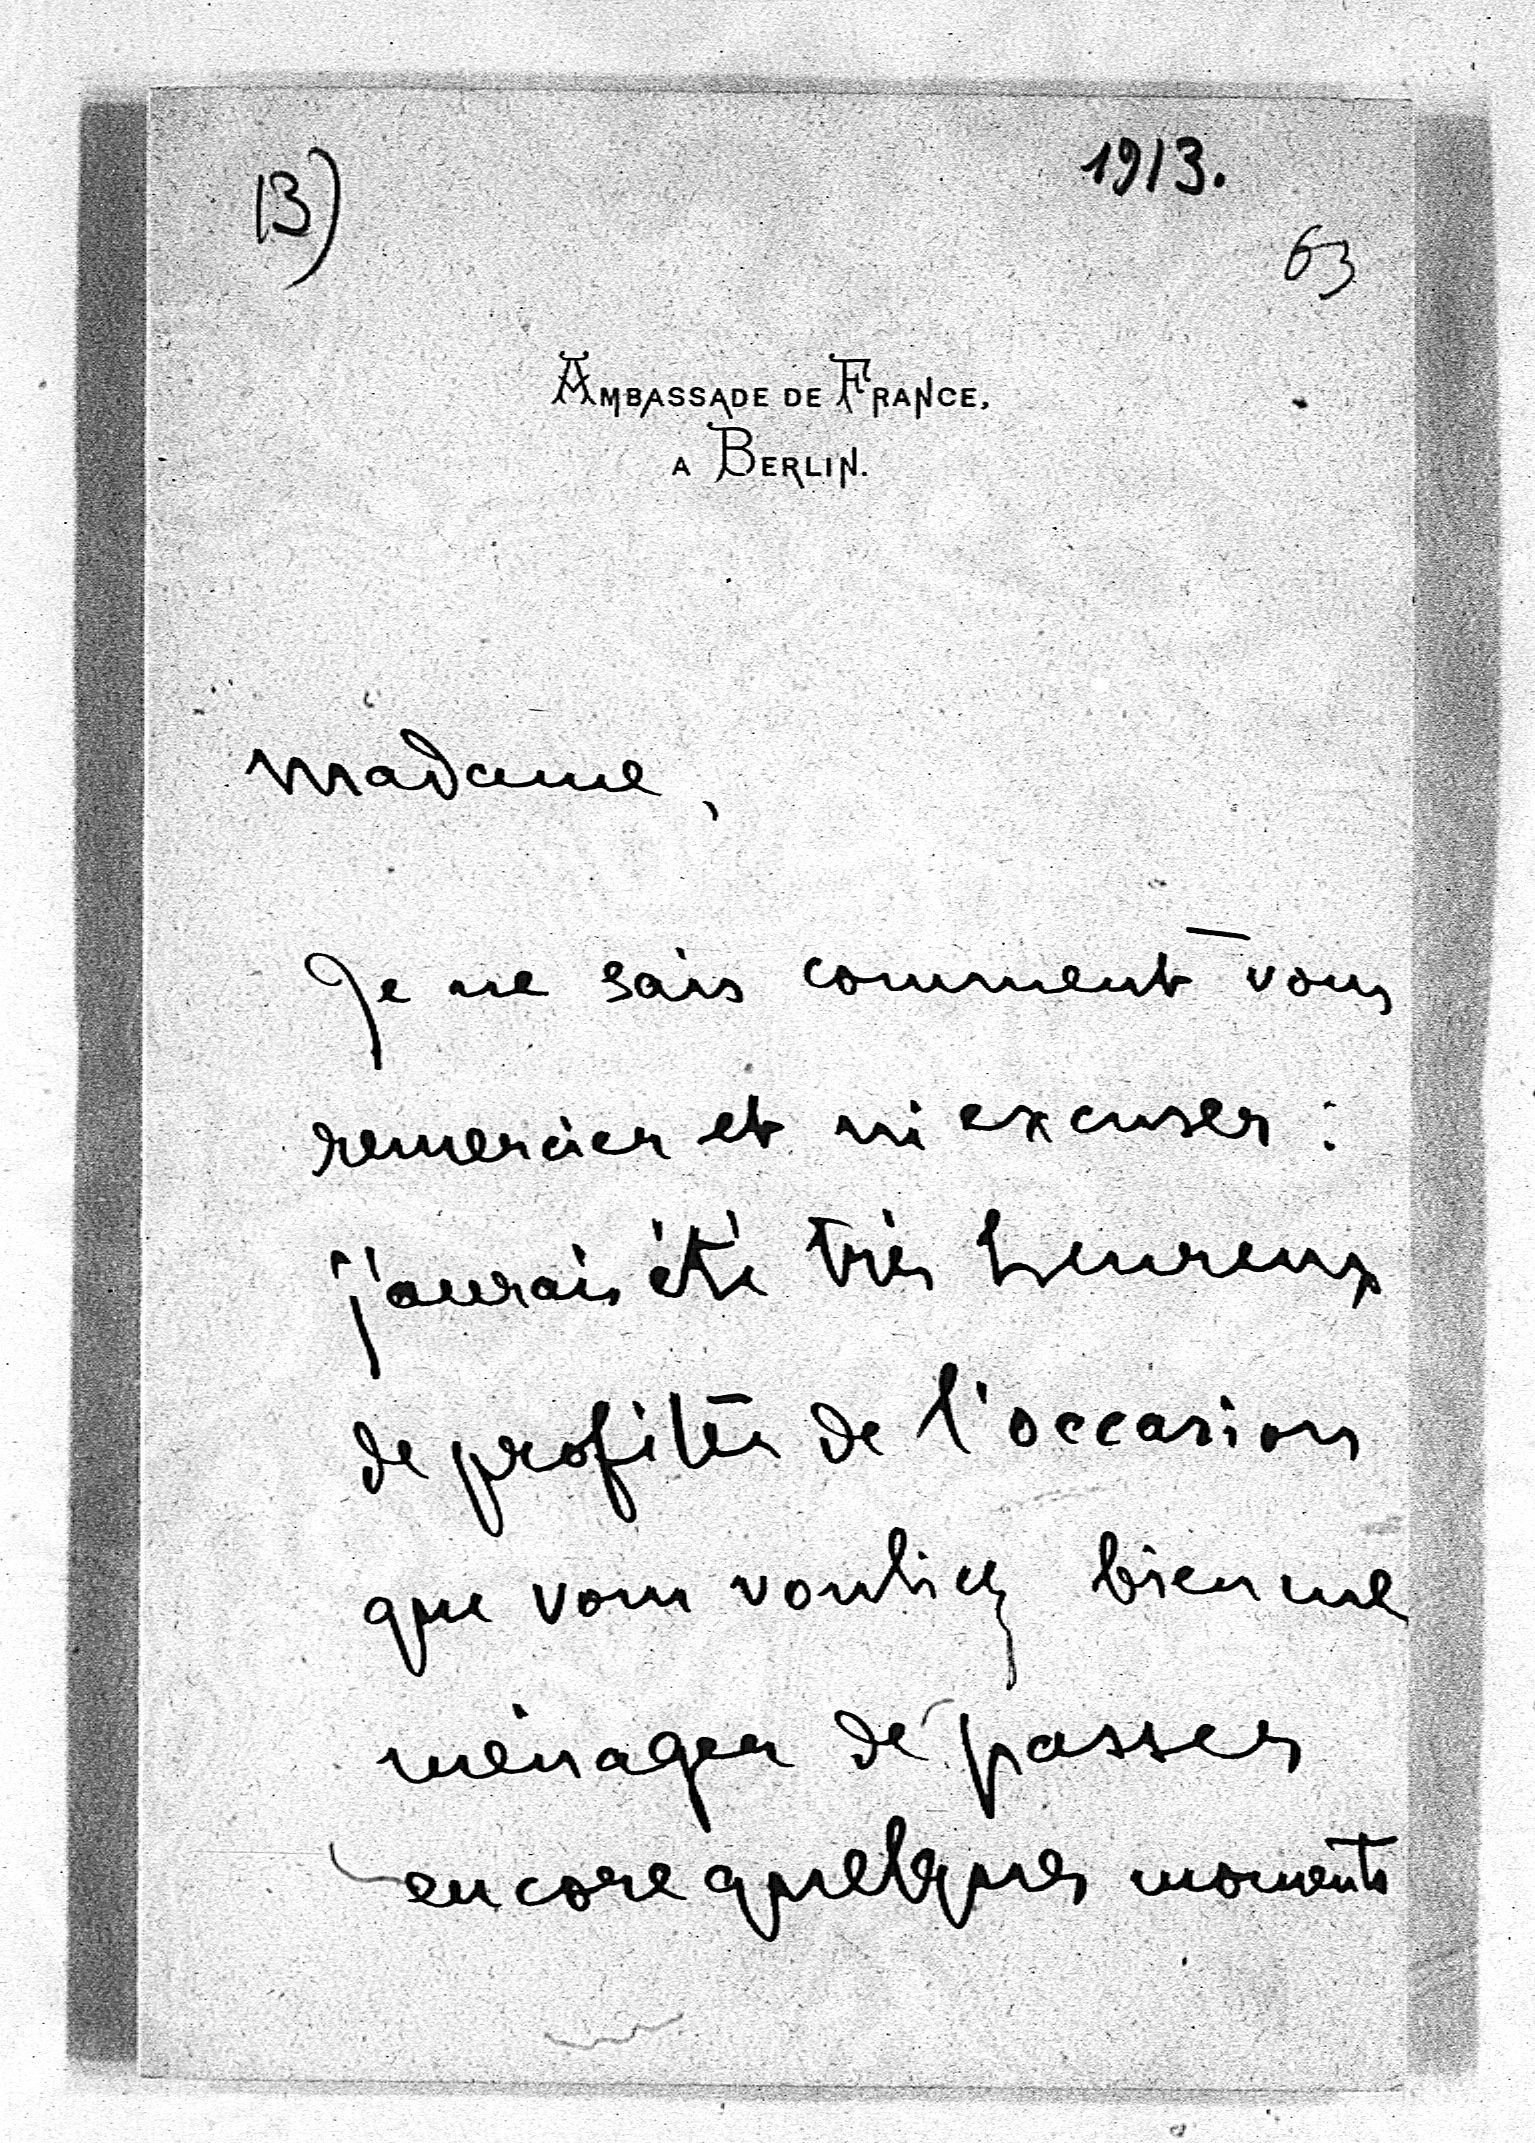 13)
1913.
63
AMBASSADE DE FRANCE,
A BERLIN.
Madame,
Je ne sais comment vous
remercier et m'excuser :
j'aurais été très heureux
de profiter de l'occasion
que vous vouliez bien me
ménager de passer
encore quelques moments